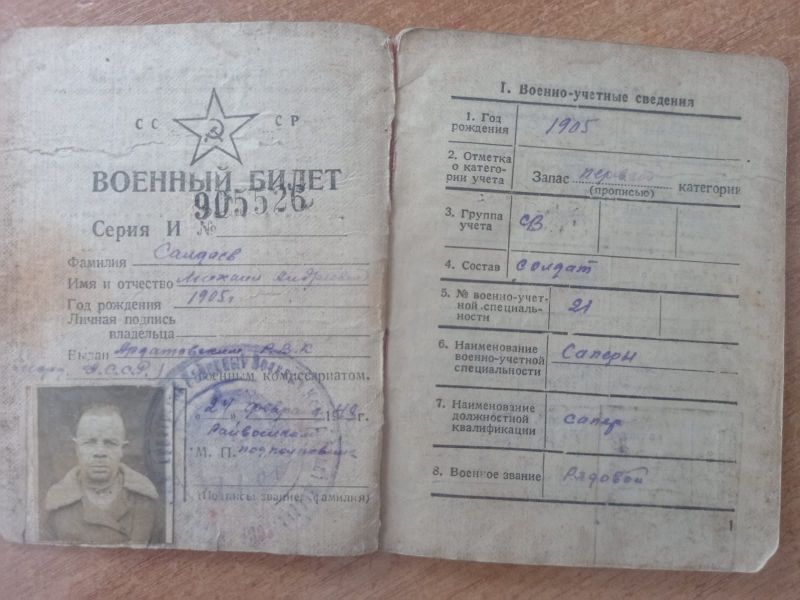 СС СР
ВОЕННЫЙ БИЛЕТ
905526
Серия И №
Фамилия Салдаев
Имя и отчество Андреевич
Год рождения 1905г
Личная подпись
владельца
Выдан Ардатовским Р.В.К
военным комиссариатом.
24 г.
Райвоенком
М. П. подполковник
(Подпись, звание, фамилия)
I. Военно-учетные сведения
1. Год
рождения 1905
2. Отметка
о катего-
рии учета
Запас первой категории
(прописью)
3. Группа
учета СВ
4. Состав Солдат
5. № военно-учет-
ной специаль-
ности 21
6. Наименование
военно-учетной
специальности Саперы
7. Наименование
должностной
квалификации сапер
8. Военное звание Рядовой
1